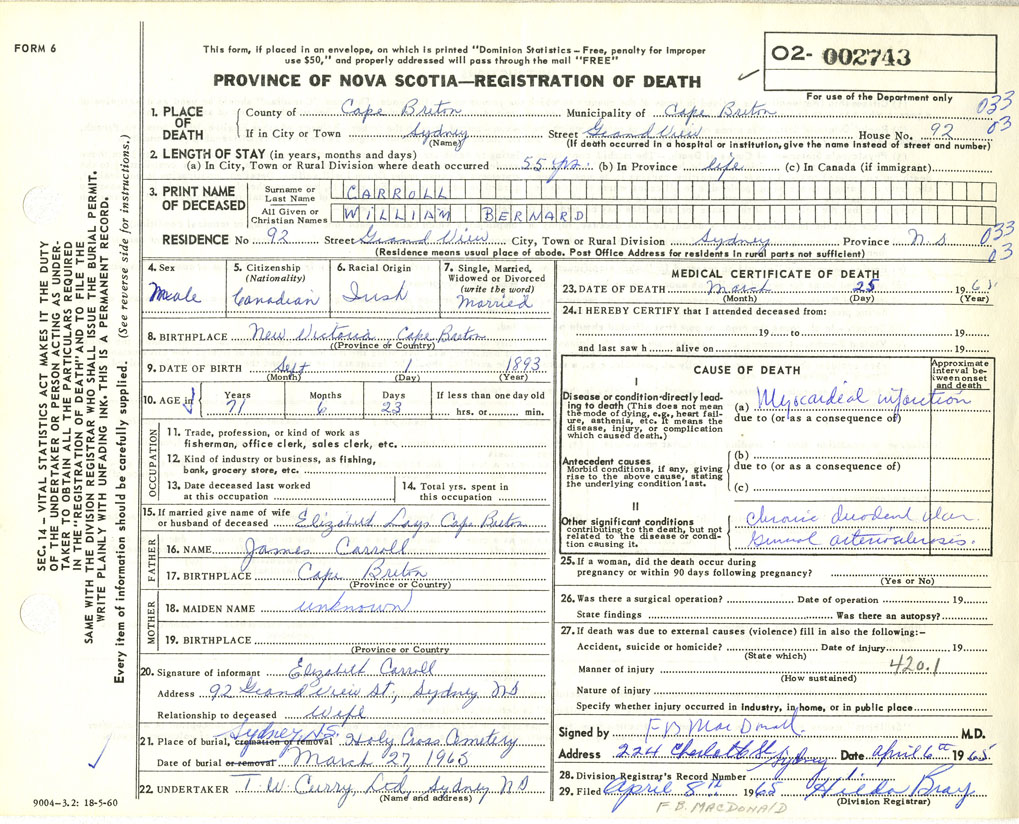 FORM 6
This form, if placed in an envelope, on which is printed "Dominion Statistics – Free, penalty for improper
use $50," and properly addressed will pass through the mail "FREE"
02- 002743
For use of the Department only
PROVINCE OF NOVA SCOTIA—REGISTRATION OF DEATH
SEC. 14 – VITAL STATISTICS ACT MAKES IT THE DUTY
OF THE UNDERTAKER OR PERSON ACTING AS UNDER-
TAKER TO OBTAIN ALL THE PARTICULARS REQUIRED
IN THE "REGISTRATION OF DEATH" AND TO FILE THE
SAME WITH THE DIVISION REGISTRAR WHO SHALL ISSUE THE BURIAL PERMIT.
WRITE PLAINLY WITH UNFADING INK. THIS IS A PERMANENT RECORD.
Every item of information should be carefully supplied. (See reverse side for instructions.)
1. PLACE OF DEATH County of Cape Breton Municipality of Cape Breton 033
If in City or Town Sydney Street Grand View House No. 92 03
(Name) (If death occurred in a hospital or institution, give the name instead of street and number)
2. LENGTH OF STAY (in years, months and days)
(a) In City, Town or Rural Division where death occurred 55 yrs. (b) In Province life (c) In Canada (if immigrant)
3. PRINT NAME OF DECEASED Surname or Last Name CARROLL
All Given or Christian Names WILLIAM BERNARD
RESIDENCE No 92 Street Grand View City, Town or Rural Division Sydney Province N.S 033
(Residence means usual place of abode. Post Office Address for residents in rural parts not sufficient) 03
4. Sex Male
5. Citizenship (Nationality) Canadian
6. Racial Origin Irish
7. Single, Married, Widowed or Divorced (write the word) Married
8. BIRTHPLACE New Victoria Cape Breton
(Province or Country)
9. DATE OF BIRTH Sept 1 1893
(Month) (Day) (Year)
10. AGE in Years 71 Months 6 Days 23 If less than one day old
hrs. or min.
OCCUPATION
11. Trade, profession, or kind of work as
fisherman, office clerk, sales clerk, etc.
12. Kind of industry or business, as fishing,
bank, grocery store, etc.
13. Date deceased last worked at this occupation
14. Total yrs. spent in this occupation
15. If married give name of wife
or husband of deceased Elizabeth Cape Breton
FATHER
16. NAME James Carroll
17. BIRTHPLACE Cape Breton
(Province or Country)
MOTHER
18. MAIDEN NAME unknown
19. BIRTHPLACE
(Province or Country)
20. Signature of informant Elizabeth Carroll
Address 92 Grand View St., Sydney NS
Relationship to deceased Wife
Sydney N.S.
21. Place of burial, cremation or removal Holy Cross Cemetery
Date of burial or removal March 27, 1965
22. UNDERTAKER T. W. Curry, Ltd, Sydney NS
(Name and address)
9004–3.2: 18-5-60
MEDICAL CERTIFICATE OF DEATH
23. DATE OF DEATH March 25 1965
(Month) (Day) (Year)
24. I HEREBY CERTIFY that I attended deceased from:
19 to 19
and last saw h alive on 19
CAUSE OF DEATH
Approximate interval between onset and death
I
Disease or condition directly lead-
ing to death (This does not mean
the mode of dying, e.g., heart fail-
ure, asthenia, etc. It means the
disease, injury, or complication
which caused death.)
(a) Myocardial infarction
due to (or as a consequence of)
Antecedent causes
Morbid conditions, if any, giving
rise to the above cause, stating
the underlying condition last.
(b)
due to (or as a consequence of)
(c)
II
Other significant conditions
contributing to the death, but not
related to the disease or condi-
tion causing it.
chronic duodenal ulcer.
General arteriosclerosis.
25. If a woman, did the death occur during
pregnancy or within 90 days following pregnancy?
(Yes or No)
26. Was there a surgical operation? Date of operation 19
State findings Was there an autopsy?
27. If death was due to external causes (violence) fill in also the following:–
Accident, suicide or homicide? Date of injury 19
(State which)
Manner of injury 420.1
(How sustained)
Nature of injury
Specify whether injury occurred in industry, in home, or in public place
Signed by F B MacDonald M.D.
Address 224 Charlotte St Sydney Date April 6th 1965
28. Division Registrar's Record Number
29. Filed April 8th 1965 Hilda Bray
(Division Registrar)
F B. MACDONALD